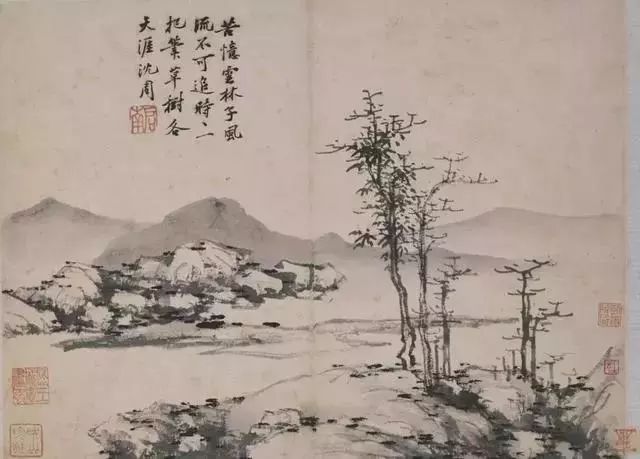 苦憶雲林子風
流不可追時〻
把筆草樹各
天涯沈周